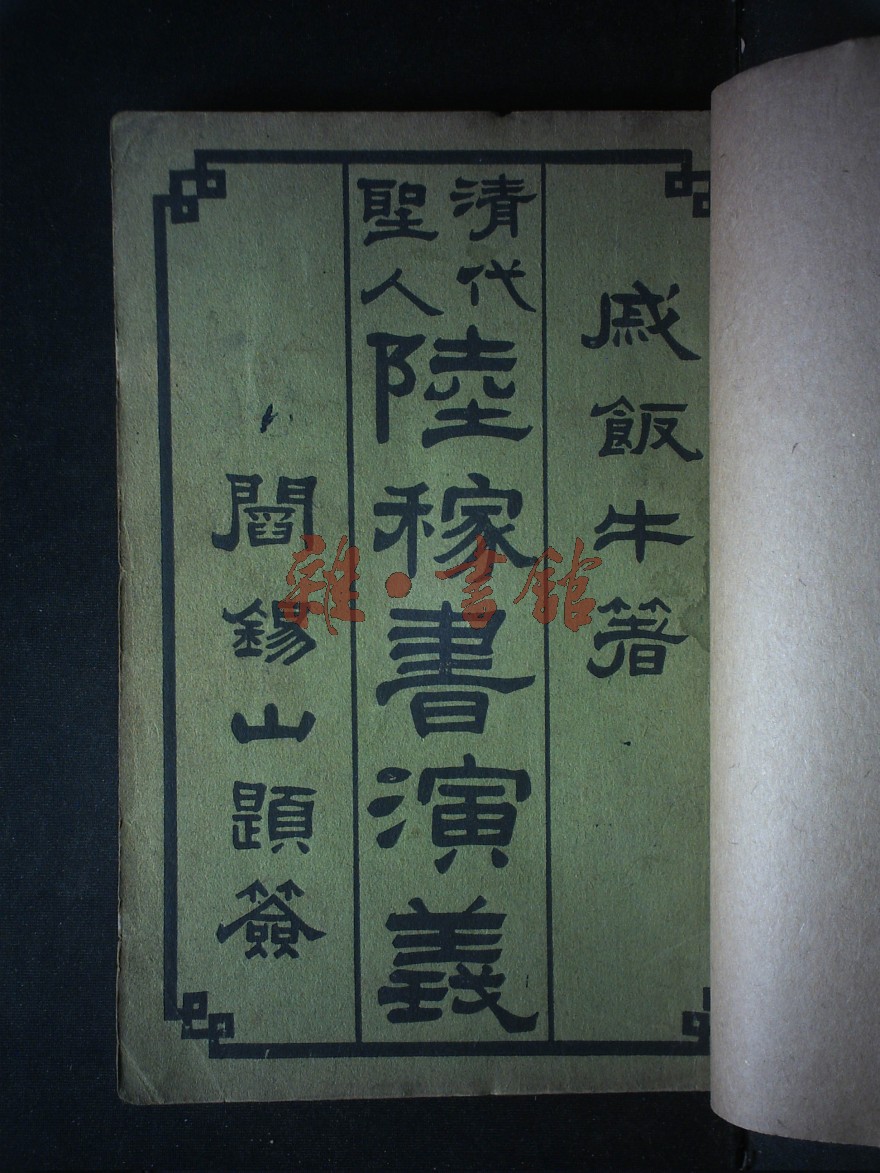 戚飯牛箸
清代
聖人
陸稼書演義
閻錫山題簽
雜·書館